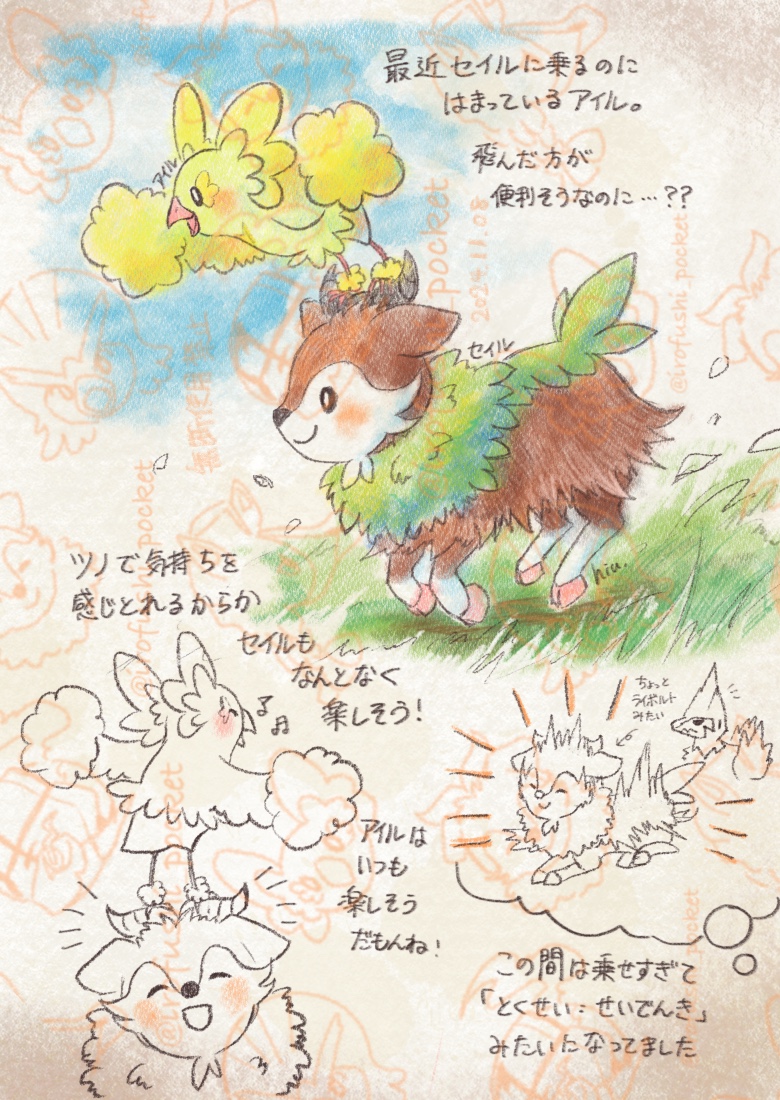 最近セイルに乗るのに
はまっているアイル。
飛んだ方が
便利そうなのに…??
アイル
セイル
niu.
2024.11.08
無断使用禁止
@irofushi_pocket
ツノで気持ちを
感じとれるからか
セイルも
なんとなく
楽しそう!
アイルは
いつも
楽しそう
だもんね!
ちょっと
ライボルト
みたい
この間は乗せすぎて
「とくせい:せいでんき」
みたいになってました